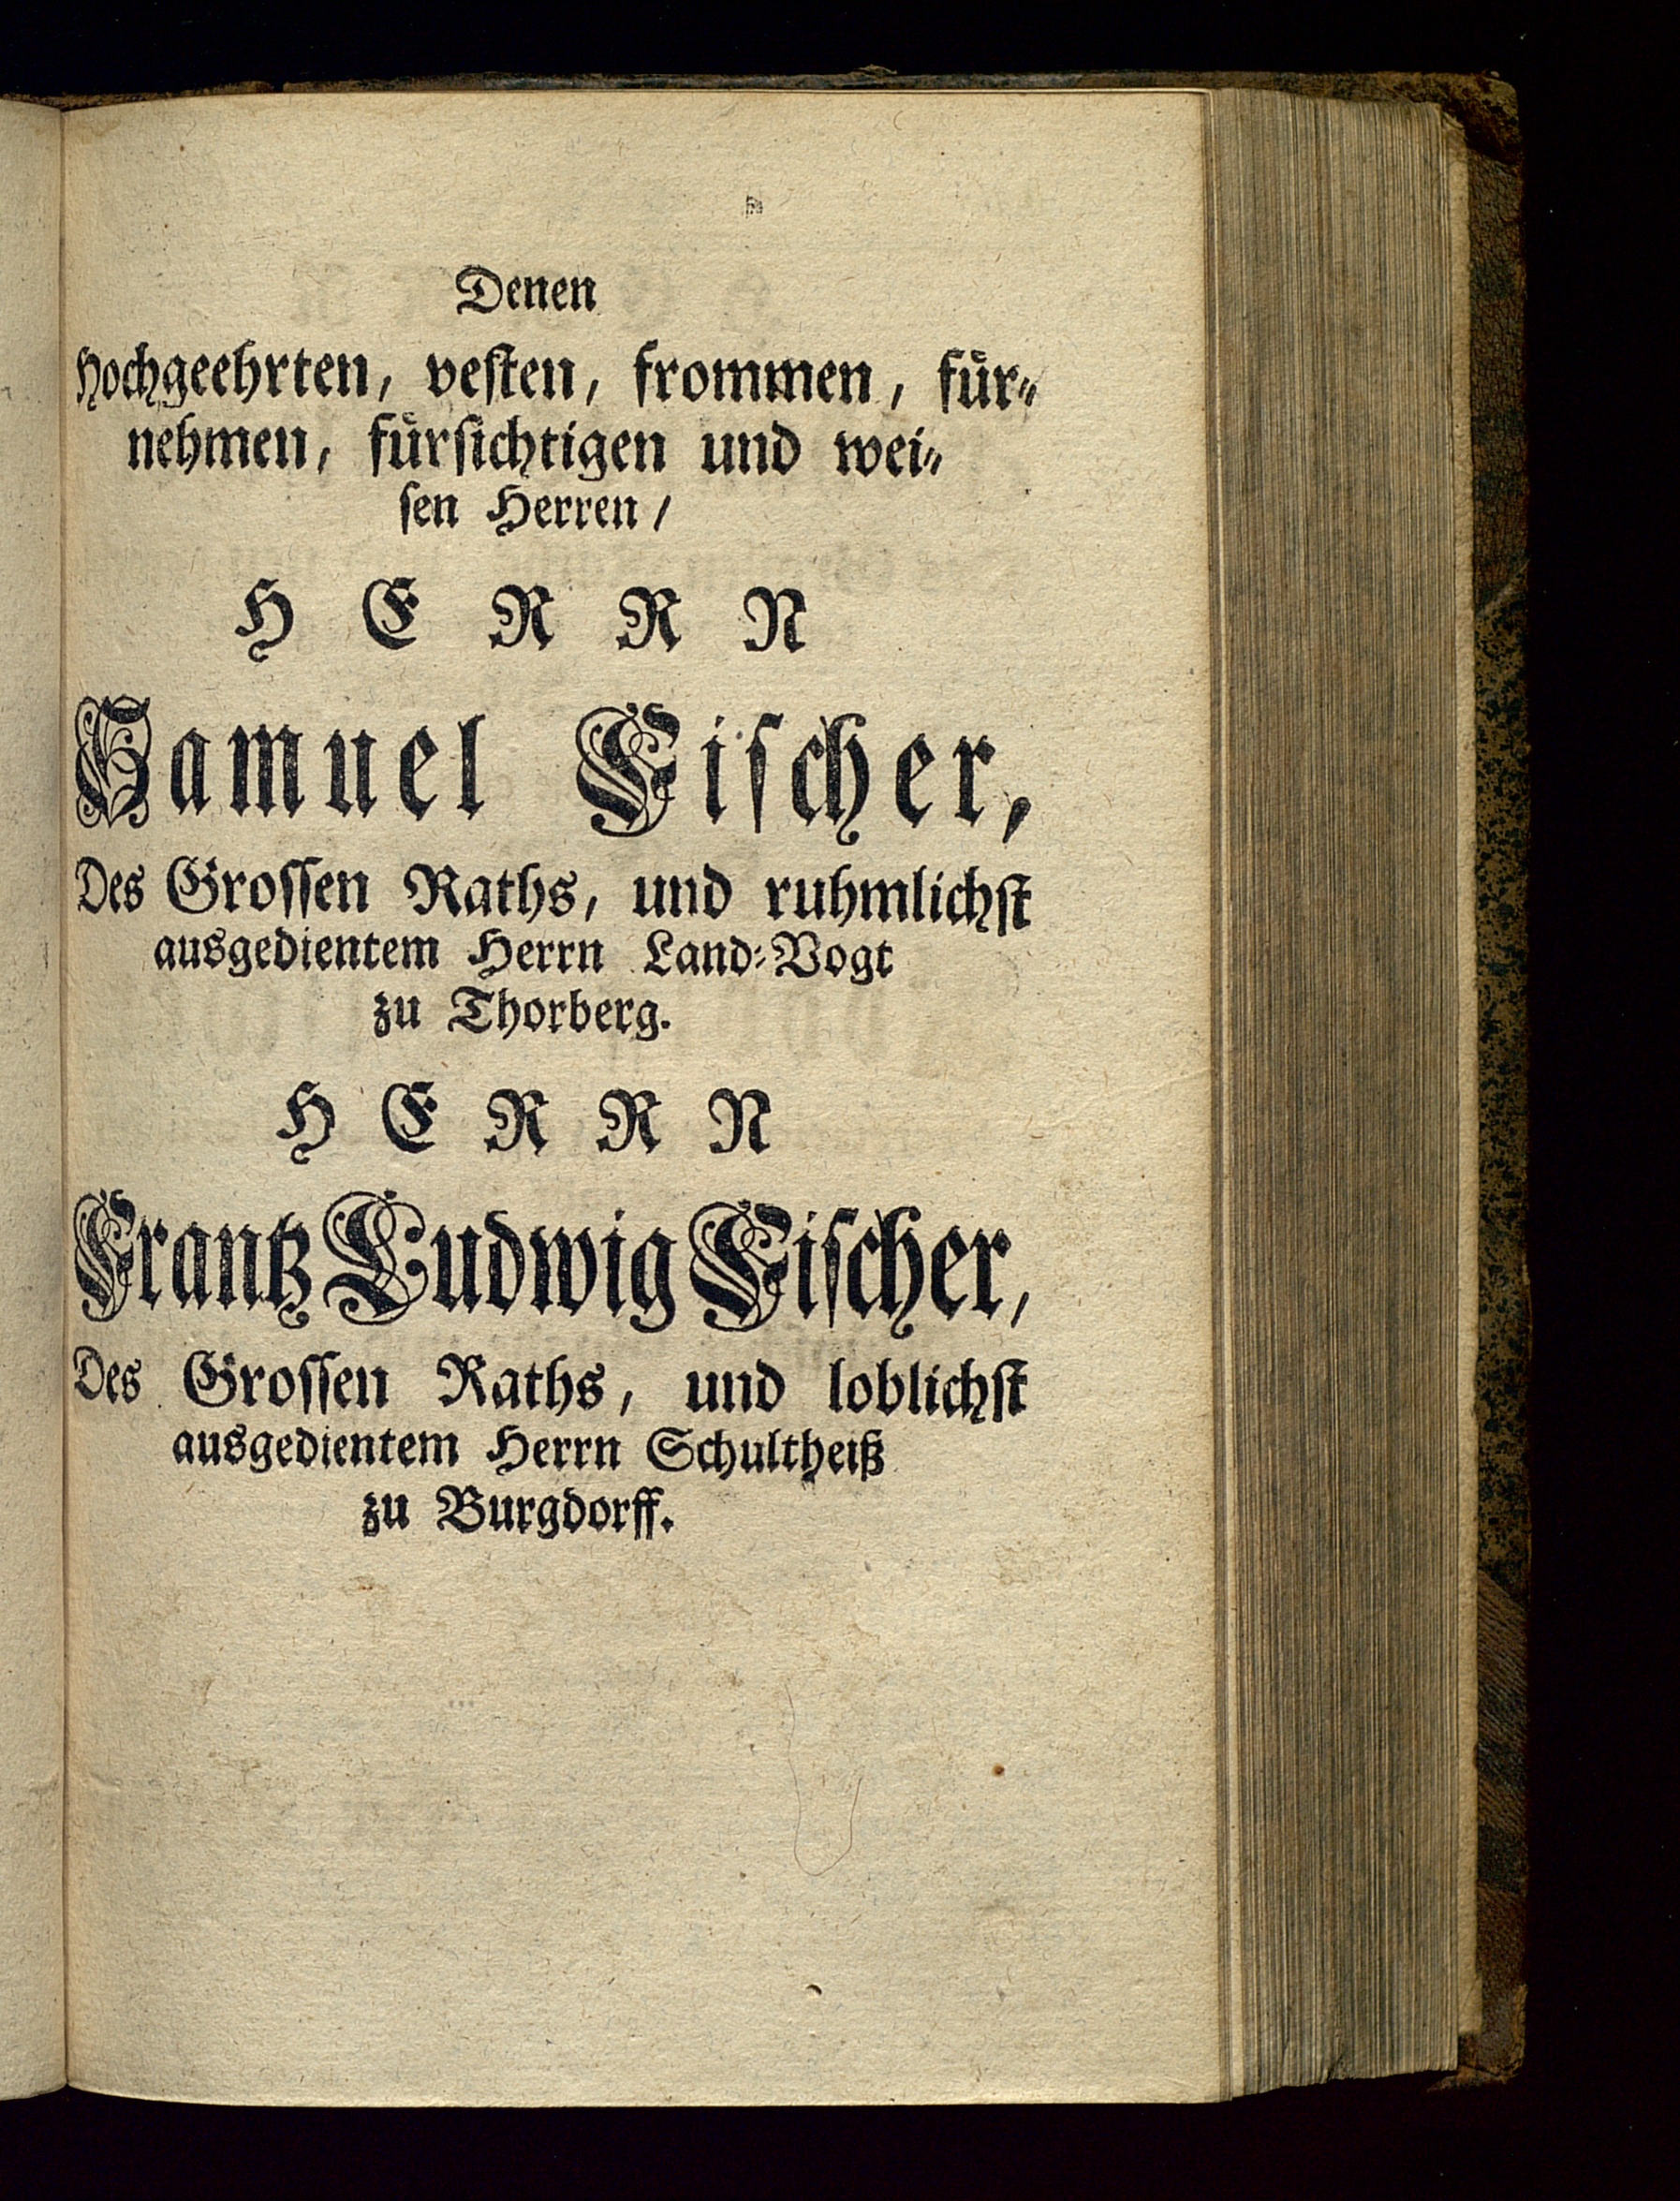 Denen
Hochgeehrten, vesten, frommen, für-
nehmen, fürsichtigen und wei-
sen Herren /
HERRN
Samuel Fischer,
Des Grossen Raths, und ruhmlichst
ausgedientem Herrn Land-Vogt
zu Thorberg.
HERRN
Frantz Ludwig Fischer,
Des Grossen Raths, und loblichst
ausgedientem Herrn Schultheiß
zu Burgdorff.